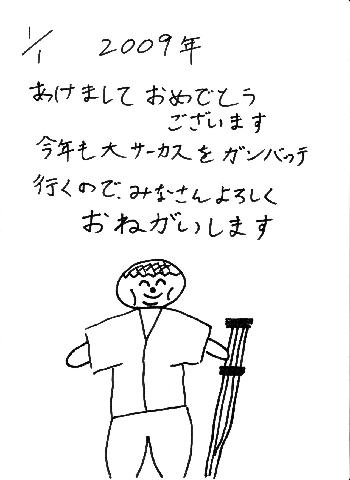 1/1 2009年
あけまして おめでとう
ございます
今年も大サーカスを ガンバって
行くので、みなさんよろしく
おねがいします